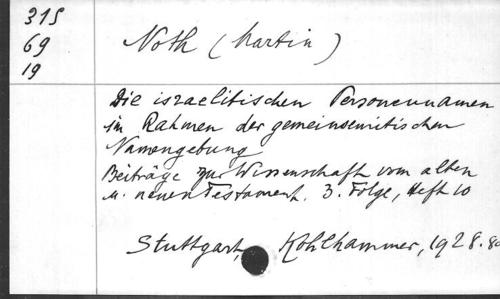 315
69
19
Noth (Martin)
Die israelitischen Personennamen
im Rahmen der gemeinsemitischen
Namengebung
Beiträge zur Wissenschaft vom alten
u. neuen Testament. 3. Folge, Heft 10
Stuttgart, Kohlhammer, 1928. 8o